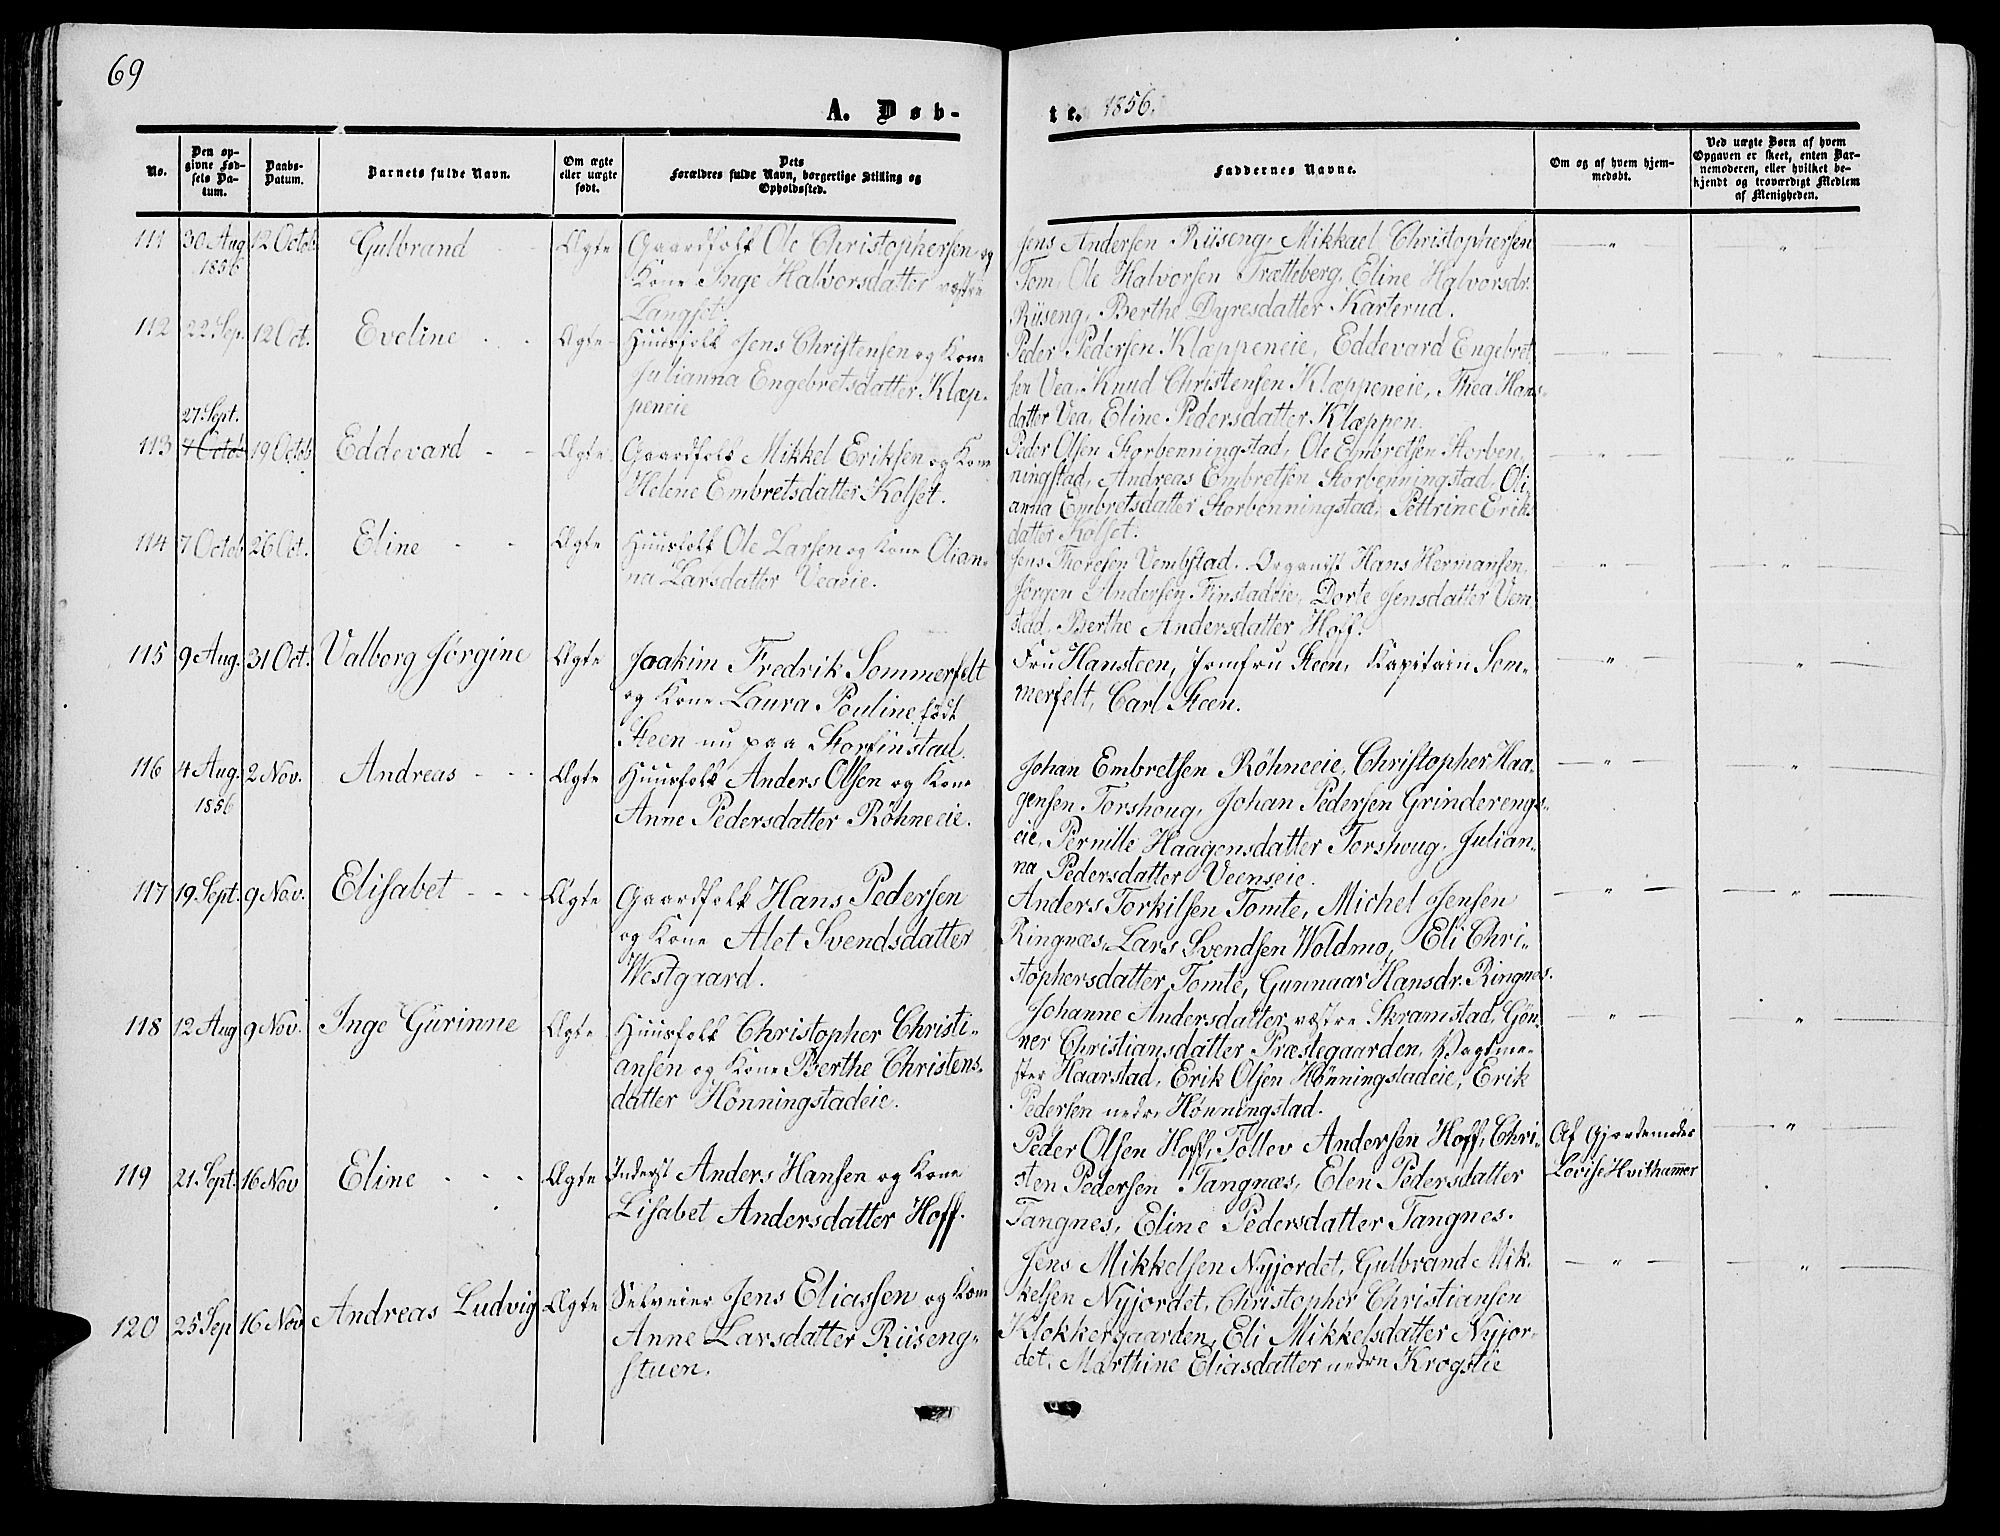 69
A. Døb-
te. 1856.
No.
Den op-
givne Fød-
sels Da-
tum.
Daabs-
Datum.
Barnets fulde Navn.
Om ægte
eller uægte
født.
Dets
Forældres fulde Navn, borgerlige Stilling og
Opholdssted.
Faddernes Navne.
Om og af hvem hjem-
medøbt.
Ved uægte Børn af hvem
Opgaven er skeet, enten Bar-
nemoderen, eller hvilket be-
kjendt og troværdigt Medlem
af Menigheden.
111 30 Aug 1856 12 Octob Gulbrand - - Ægte
Gaardfolk Ole Christophersen og
Kone Inge Halvorsdatter vestre
Langset.
Jens Andersen Riiseng, Mikkael Christophersen
Tom, Ole Halvorsen Trætteberg, Eline Halvorsdr.
Riiseng, Berthe Dyresdatter Karterud.
112 22 Sep. 12 Oct. Eveline - - Ægte
Huusfolk Jens Christensen og Kone
Julianna Engebretsdatter Klæp-
peneie
Peder Pedersen Klæppeneie, Eddevard Engebret
sen Vea, Knud Christensen Klæppeneie, Thea Hans-
datter Vea, Eline Pedersdatter Klæppen.
27 Sept.
113 7 Octob 19 Octob Eddevard - - Ægte
Gaardfolk Mikkel Eriksen og Kone
Helene Embretsdatter Kolset.
Peder Olsen Storbenningstad, Ole Embretsen Storben-
ningstad, Andreas Embretsen Storbenningstad, Oli-
anna Embretsdatter Storbenningstad, Pettrine Eriks
datter Kolset.
114 7 Octob 26 Oct. Eline - - Ægte
Huusfolk Ole Larsen og Kone Olian-
na Larsdatter Veaeie.
Jens Thoresen Vembstad. Organist Hans Hermansen,
Jørgen Andersen Finstadeie, Dorte Jensdatter Vem
stad, Berthe Andersdatter Hoff.
115 9 Aug. 31 Oct. Valborg Jørgine Ægte
Joakim Fredrik Sommerfelt
og Kone Laura Pouline født
Steen nu paa Storfinstad.
Fru Hansteen, Jomfru Steen, Kapitain Som-
merfelt, Carl Steen.
116 4 Aug. 1856 2 Nov. Andreas - - - Ægte
Huusfolk Anders Olsen og Kone
Anne Pedersdatter Röhneeie.
Johan Embretsen Röhneeie, Christopher Haa-
gensen Torshoug, Johan Pedersen Grinderengs-
eie, Pernille Haagensdatter Torshoug, Julian-
na Pedersdatter Veenseie.
117 19 Sept. 9 Nov. Elisabet - - - Ægte
Gaardfolk Hans Pedersen
og Kone Alet Svendsdatter
Westgaard.
Anders Torkilsen Tomte, Michel Jensen
Ringnæs, Lars Svendsen Woldmo, Eli Chri-
stophersdatter Tomte, Gunnaar Hansdr. Ringnes.
118 12 Aug 9 Nov. Inge Gurinne Ægte
Huusfolk Christopher Christi-
ansen og Kone Berthe Christens-
datter Hönningstadeie.
Johanne Andersdatter vestre Skramstad, Gön-
ner Christiansdatter Præstegaarden, Vagtme-
ster Haarstad, Erik Olsen Hönningstadeie, Erik
Pedersen nedre Hönningstad.
119 21 Sept. 16 Nov Eline - - - Ægte
Inderst Anders Hansen og Kone
Lisabet Andersdatter Hoff.
Peder Olsen Hoff, Tollov Andersen Hoff, Chri-
sten Pedersen Tangnæs, Elen Pedersdatter
Tangnes, Eline Pedersdatter Tangnes.
Af Gjordemoder
Lovise Hvithammer
120 25 Sep 16 Nov Andreas Ludvig Ægte
Selveier Jens Eliassen og Kone
Anne Larsdatter Riiseng-
stuen.
Jens Mikkelsen Nyjordet, Gulbrand Mik-
kelsen Nyjordet, Christopher Christiansen
Klokkergaarden, Eli Mikkelsdatter Nyjor-
det, Marthine Eliasdatter nedre Krogstie